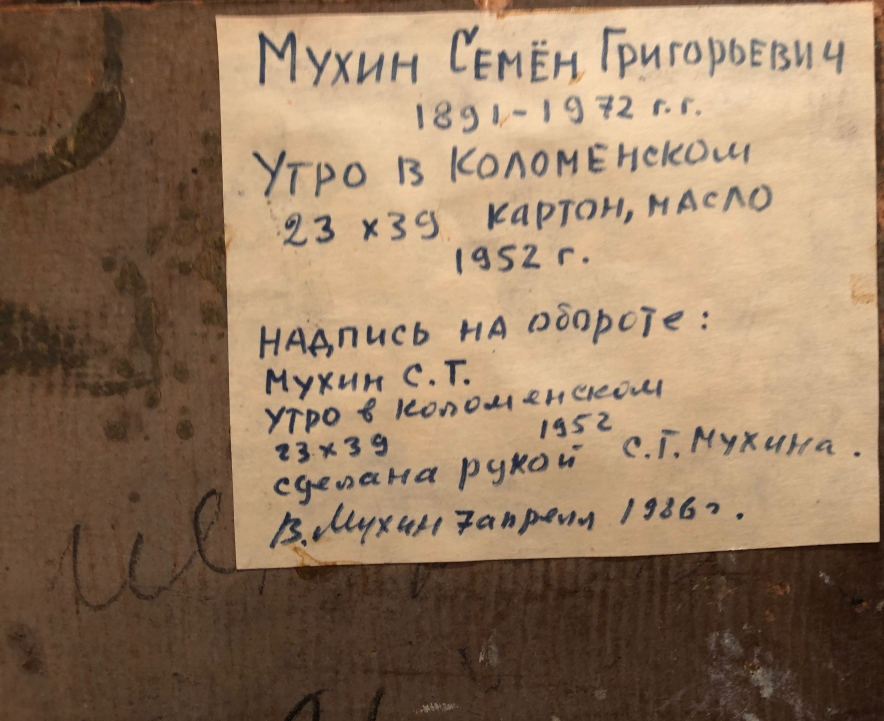 Мухин Семён Григорьевич
1891-1972 г.г.
Утро в Коломенском
23 х 39 картон, масло
1952 г.
надпись на обороте:
Мухин С.Г.
утро в Коломенском
23 х 39 1952
сделана рукой С.Г. Мухина.
В. Мухин 7 апреля 1986 г.